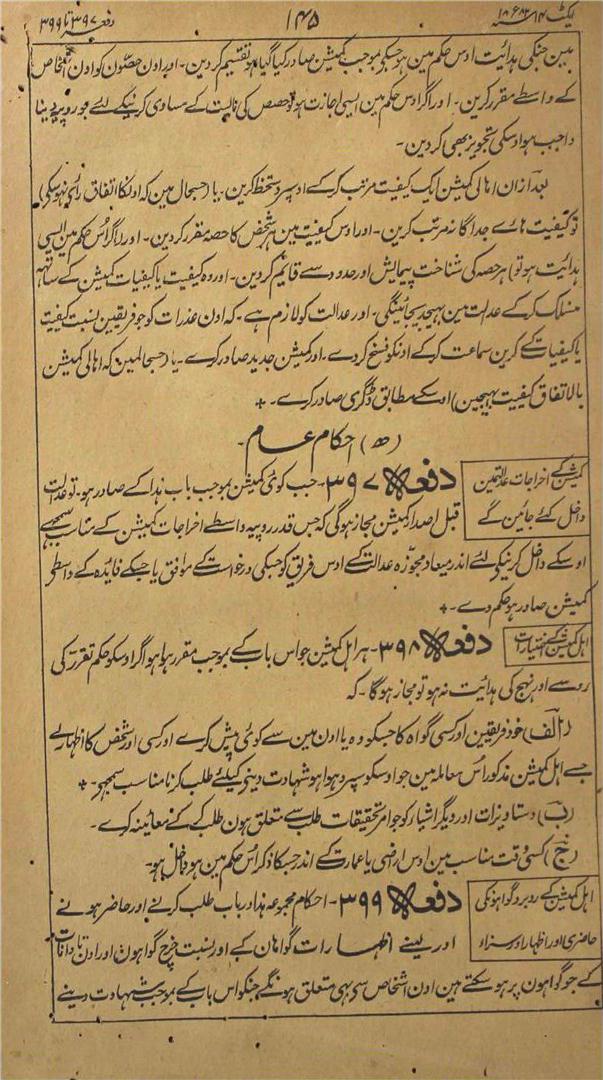 ایکٹ ۱۴ ۱۸۸۲ء
۱۴۵
دفعہ ۳۹۷ تا ۳۹۹
مین جنکی ہدائیت اوس حکم مین ہو جسکی بموجب کمیشن صادر کیا گیا ہو تقسیم کردین۔ اور اون حصون کو اون اشخاص
کے واسطے مقرر کرین۔ اور اگر اوس حکم مین ایسی اجازت ہو تو حصص کی مالیت کے مساوی کرنیکے لئے جو روپیہ دینا
واجب ہو اوسکی تجویز بھی کردین۔
بعد ازان اہالی کمیشن ایک کیفیت مرتب کرکے اوسپر دستخط کرین۔ یا (جسحال مین کہ اونکا اتفاق رائی نہو سکی)
تو کیفیت ہاے جداگانہ مرتب کرین۔ اور اوس کیفیت مین ہر شخص کا حصہ مقرر کردین۔ اور (اگر اُس حکم مین ایسی
ہدائیت ہو تو) ہر حصہ کی شناخت پیمائش اور حدود سے قائم کردین۔ اور وہ کیفیت یا کیفیات کمیشن کے ساتھہ
منسلک کرکے عدالت مین بہیجدیجائینگی۔ اور عدالت کو لازم ہے۔ کہ اون عذرات کو جو فریقین نسبت کیفیت
یا کیفیات کے کرین سماعت کرکے اونکو منسوخ کردے۔ اور کمیشن جدید صادر کرے۔ یا (جسحالمین کہ اہالی کمیشن
بالاتفاق کیفیت بہیجین) اوسکے مطابق ڈگری صادر کرے۔ +
(ھ) احکام عام۔
کمیشن کے اخراجات عدالتمین
داخل کئے جائین گے
دفعہ ۳۹۷۔ جب کوئی کمیشن بموجب باب ہذا کے صادر ہو۔ تو عدالت
قبل اصدار کمیشن مجاز ہوگی کہ جس قدر روپیہ واسطے اخراجات کمیشن کے مناسب سمجہے
اوسکے داخل کرنیکے لئے اندر میعاد مجوزہ عدالت کے اوس فریق کو جسکی درخواست کے موافق یا جسکے فایدہ کے واسطے
کمیشن صادر ہو حکم دے۔ +
اہل کمیشن کے اختیارات
دفعہ ۳۹۸۔ ہر اہل کمیشن جو اس باب کے بموجب مقرر ہوا ہو اگر اوسکو حکم تقرر کی
روسے اور نہج کی ہدائیت نہو تو مجاز ہوگا۔ کہ
(الف) خود فریقین اور کسی گواہ کا جسکو وہ یا اون مین سے کوئی پیش کرے اور کسی اور شخص کا اظہار لے
جسے اہل کمیشن مذکور اُس معاملہ مین جو اوسکو سپرد ہوا ہو شہادت دینی کیلئے طلب کرنا مناسب سمجہے۔ +
(ب) دستاویزات اور دیگر اشیار کو جو امر تحقیقات طلب سے متعلق ہون طلب کرکے معائینہ کرے۔
(ج) کسی وقت مناسب مین اوس ارضی یا عمارت کے اندر جسکا ذکر اُس حکم مین ہو داخل ہو۔
اہل کمیشن کے روبرو گواہونکی
حاضری اور اظہار اور سزا
دفعہ ۳۹۹۔ احکام مجموعہ ہذا در باب طلب کرنے اور حاضر ہونے
اور لینے اظہارات گواہان کے اور نسبت خرچ گواہون اور اون تاوانات
کے جو گواہون پر ہو سکتے ہین اون اشخاص سی بہی متعلق ہونگے جنکو اس باب کے بموجب شہادت دینے